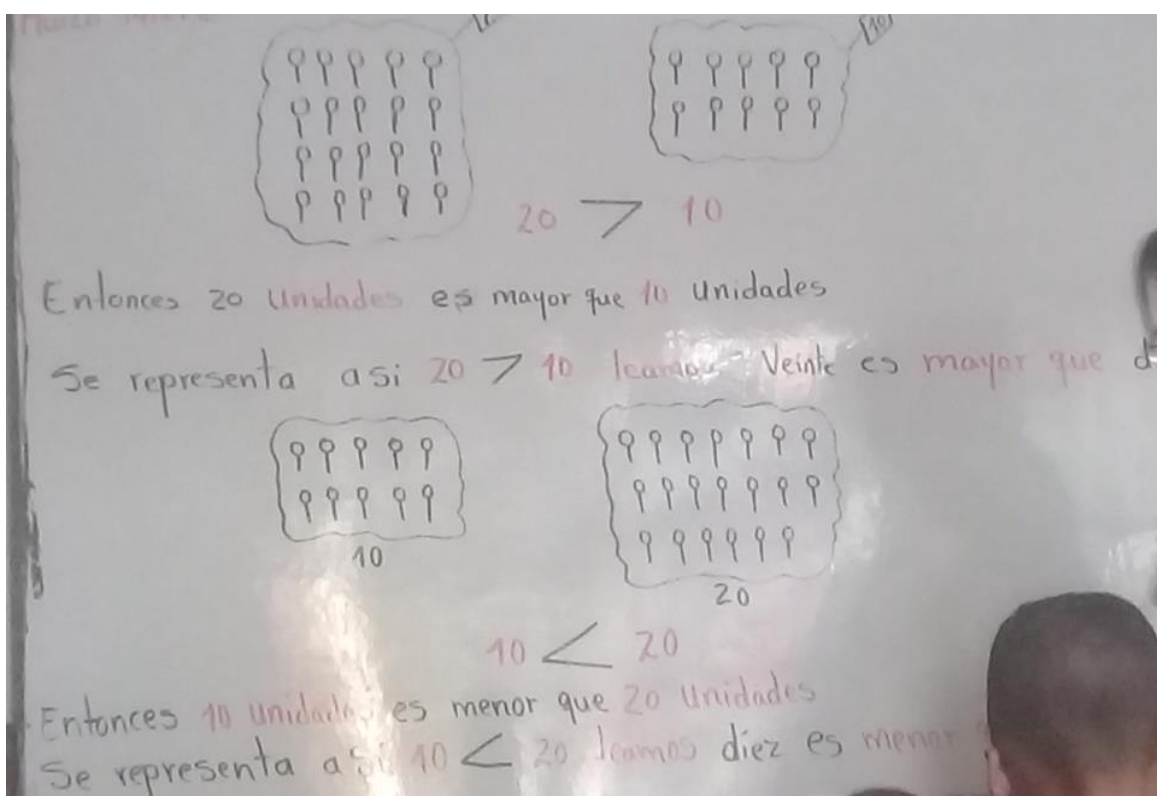 [10]
20 > 10
Entonces 20 unidades es mayor que 10 unidades
Se representa asi 20 > 10 leamos Veinte es mayor que
10
20
10 < 20
Entonces 10 unidades es menor que 20 unidades
Se representa asi 10 < 20 leamos diez es menor